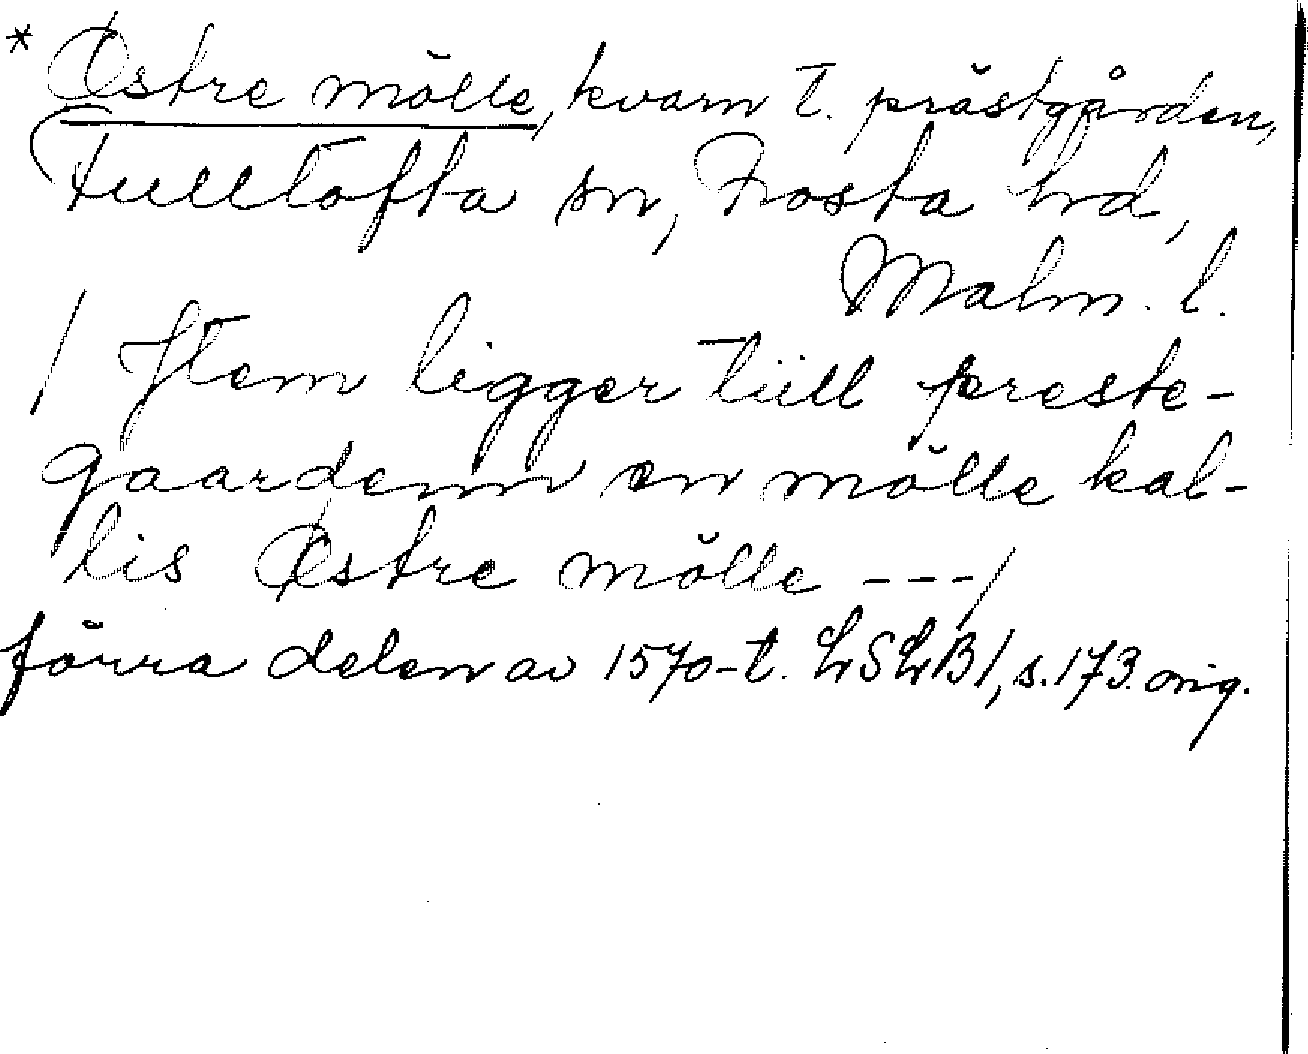 * Østre mölle, kvarn t. prästgården,
Fulltofta sn, Frosta hd,
Malm. l.
/ Jtem ligger tüll preste-
gaardenn en mölle kal-
lis Østre mölle ---/
förra delen av 1570-t. LSLB1, s. 173. orig.